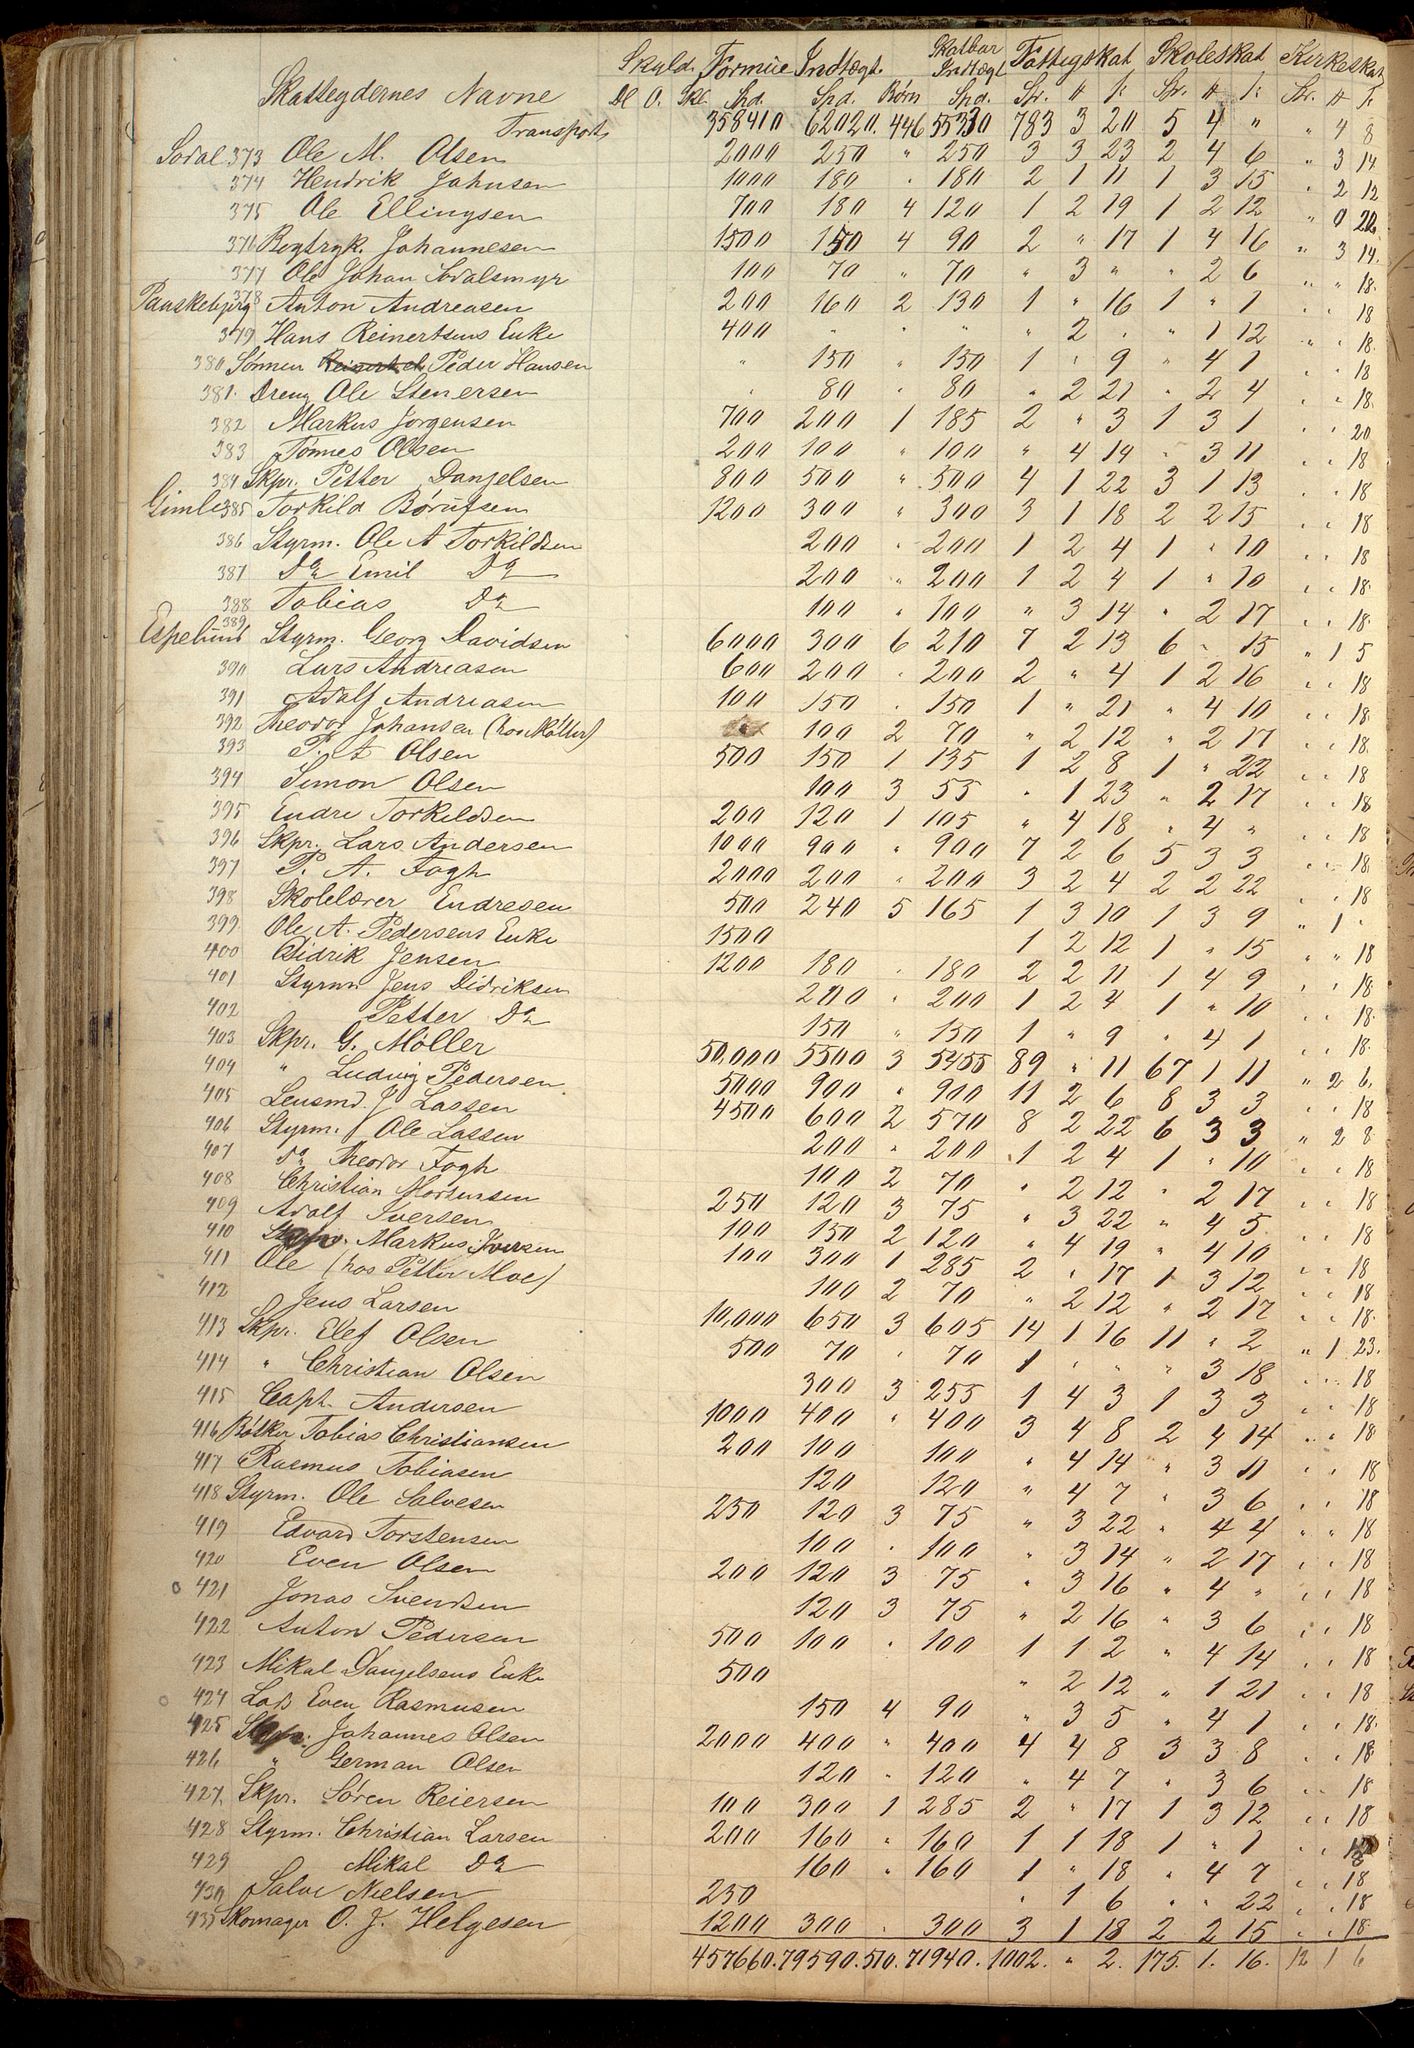 Skatteydernes Navne Skyld. Formue Indtægt. Skatbar Indtægt Fattigskat Skoleskat Kirkeskat
Dl O. Skl. Spd. Spd. Børn Spd. Spr. # ſ: Spr. # ſ: Spr. # ſ:
Transport 358410 62020. 446 55330 783 3 20 5 4 " " 4 8
Sodal 373 Ole M. Olsen 2000 250 " 250 3 3 23 2 4 6 " 3 14
374 Hendrik Johnsen 1000 180 " 180 2 1 11 1 3 15 " 2 12
375 Ole Ellingsen 700 180 4 120 1 2 19 1 2 12 " 0 22
376 Bogtryk. Johannesen 1500 150 4 90 2 " 17 1 4 16 " 3 14.
377 Ole Johan Sodalsmyr 100 70 " 70 " 3 " " 2 6 " " 18.
Panskebjerg 378 Anton Andreasen 200 160 2 130 1 " 16 1 " 1 " " 18
379 Hans Reinertsens Enke 400 " " " " 2 " " 1 12 " " 18.
380 Sønnen Peder Hansen " 150 " 150 1 " 9 " 4 1 " " 18
381. Dreng Ole Stenersen " 80 " 80 " 2 21 " 2 4 " " 18.
382 Markus Jorgensen 700 200 1 185 2 " 3 1 3 1 " " 20
383 Tønnes Olsen 200 100 " 100 " 4 14 " 3 11 " " 18
384 Skpr. Petter Danjelsen 800 500 " 500 4 1 22 3 1 13 " " 18
Gimle 385 Torkild Børufsen 1200 300 " 300 3 1 18 2 2 15 " " 18
386 Styrm. Ole A Torkildsen 200 " 200 1 2 4 1 " 10 " " 18
387 Do Emil Do 200 " 200 1 2 4 1 " 10 " " 18.
388 Tobias Do 100 " 100 " 3 14 " 2 17 " " 18.
Espelund 389 Styrm. Georg Davidsen 6000 300 6 210 7 2 13 6 " 15 " 1 5
390 Lars Andreasen 600 200 " 200 2 " 4 1 2 16 " " 18
391 Adolf Andreasen 100 150 " 150 1 " 21 " 4 10 " " 18.
392 Theodor Johansen (hos Møller) 100 2 70 " 2 12 " 2 17 " " 18.
393 P. A Olsen 500 150 1 135 1 2 8 1 " 22 " " 18
394 Simon Olsen 100 3 55 " 1 23 " 2 17 " " 18
395 Endre Torkildsen 200 120 1 105 " 4 18 " 4 " " " 18
396 Skpr. Lars Andersen 1000 900 " 900 7 2 6 5 3 3 " " 18.
397 P. A. Fogh 2000 200 " 200 3 2 4 2 2 22 " " 18
398 Skolelærer Endresen 500 240 5 165 1 3 10 1 3 9 " 1 "
399 Ole A. Pedersens Enke 1500 1 2 12 1 " 15 " " 18
400 Didrik Jensen 1200 180 " 180 2 2 11 1 4 9 " " 18
401 Styrm Jens Didriksen 200 " 200 1 2 4 1 " 10 " " 18.
402 Petter Do 150 " 150 1 " 9 " 4 1 " " 18.
403 Skpr. G. Møller 50,000 5500 3 5455 89 " 11 67 1 11 " 2 6.
404 " Ludvig Pedersen 5000 900 " 900 11 2 6 8 3 3 " " 18
405 Lensmd. J Lassen 4500 600 2 570 8 2 22 6 3 3 " 2 8
406 Styrm. Ole Lassen 200 " 200 1 2 4 1 " 10 " " 18
407 Do Theodor Fogh 100 2 70 " 2 12 " 2 17 " " 18
408 Christian Mortensen 250 120 3 75 " 3 22 " 4 5 " " 18
409 Adolf Iversen 100 150 2 120 " 4 19 " 4 10 " " 18
410 Markus Iversen 100 300 1 285 2 " 17 1 3 12 " " 18
411 Ole (hos Petter Moe) 100 2 70 " 2 12 " 2 17 " " 18.
412 Jens Larsen 10,000 650 3 605 14 1 16 11 " 2 " 1 23.
413 Skpr. Elef Olsen 500 70 " 70 1 " " " 3 18 " " 18
414 " Christian Olsen 300 3 255 1 4 3 1 3 3 " " 18
415 Capt. Andersen 1000 400 " 400 3 4 8 2 4 14 " " 18
416 Bøtker Tobias Christiansen 200 100 100 " 4 14 " 3 11 " " 18
417 Rasmus Tobiasen 120 120 " 4 7 " 3 6 " " 18
418 Styrm. Ole Salvesen 250 120 3 75 " 3 22 " 4 4 " " 18
419 Edvard Torstensen 100 " 100 " 3 14 " 2 17 " " 18
420 Even Olsen 200 120 3 75 " 3 16 " 4 " " " 18
421 Jonas Svendsen 120 3 75 " 2 16 " 3 6 " " 18
422 Anton Pedersen 500 100 " 100 1 1 2 " 4 14 " " 18
423 Mikal Danjelsens Enke 500 " 2 12 " 1 21 " " 18
424 Lods Even Rasmusen 150 4 90 " 3 5 " 4 1 " " 18.
425 Johannes Olsen 2000 400 " 400 4 4 8 3 3 8 " " 18
426 " German Olsen 120 " 120 " 4 7 " 3 6 " " 18
427. Skpr. Søren Reiersen 100 300 1 285 2 " 17 1 3 12 " " 18
428 Styrm. Christian Larsen 200 160 " 160 1 1 18 1 " 1 " " 18
429 Mikal Do 160 " 160 1 " 18 " 4 7 " " 18
430 Salve Nielsen 250 " 1 6 " " 22 " " 18
431 Skomager O. J. Helgesen 1200 300 " 300 3 1 18 2 2 15 " " 18
457660. 79590. 510. 71940. 1002. " 2. 175. 1. 16. 12 1 6